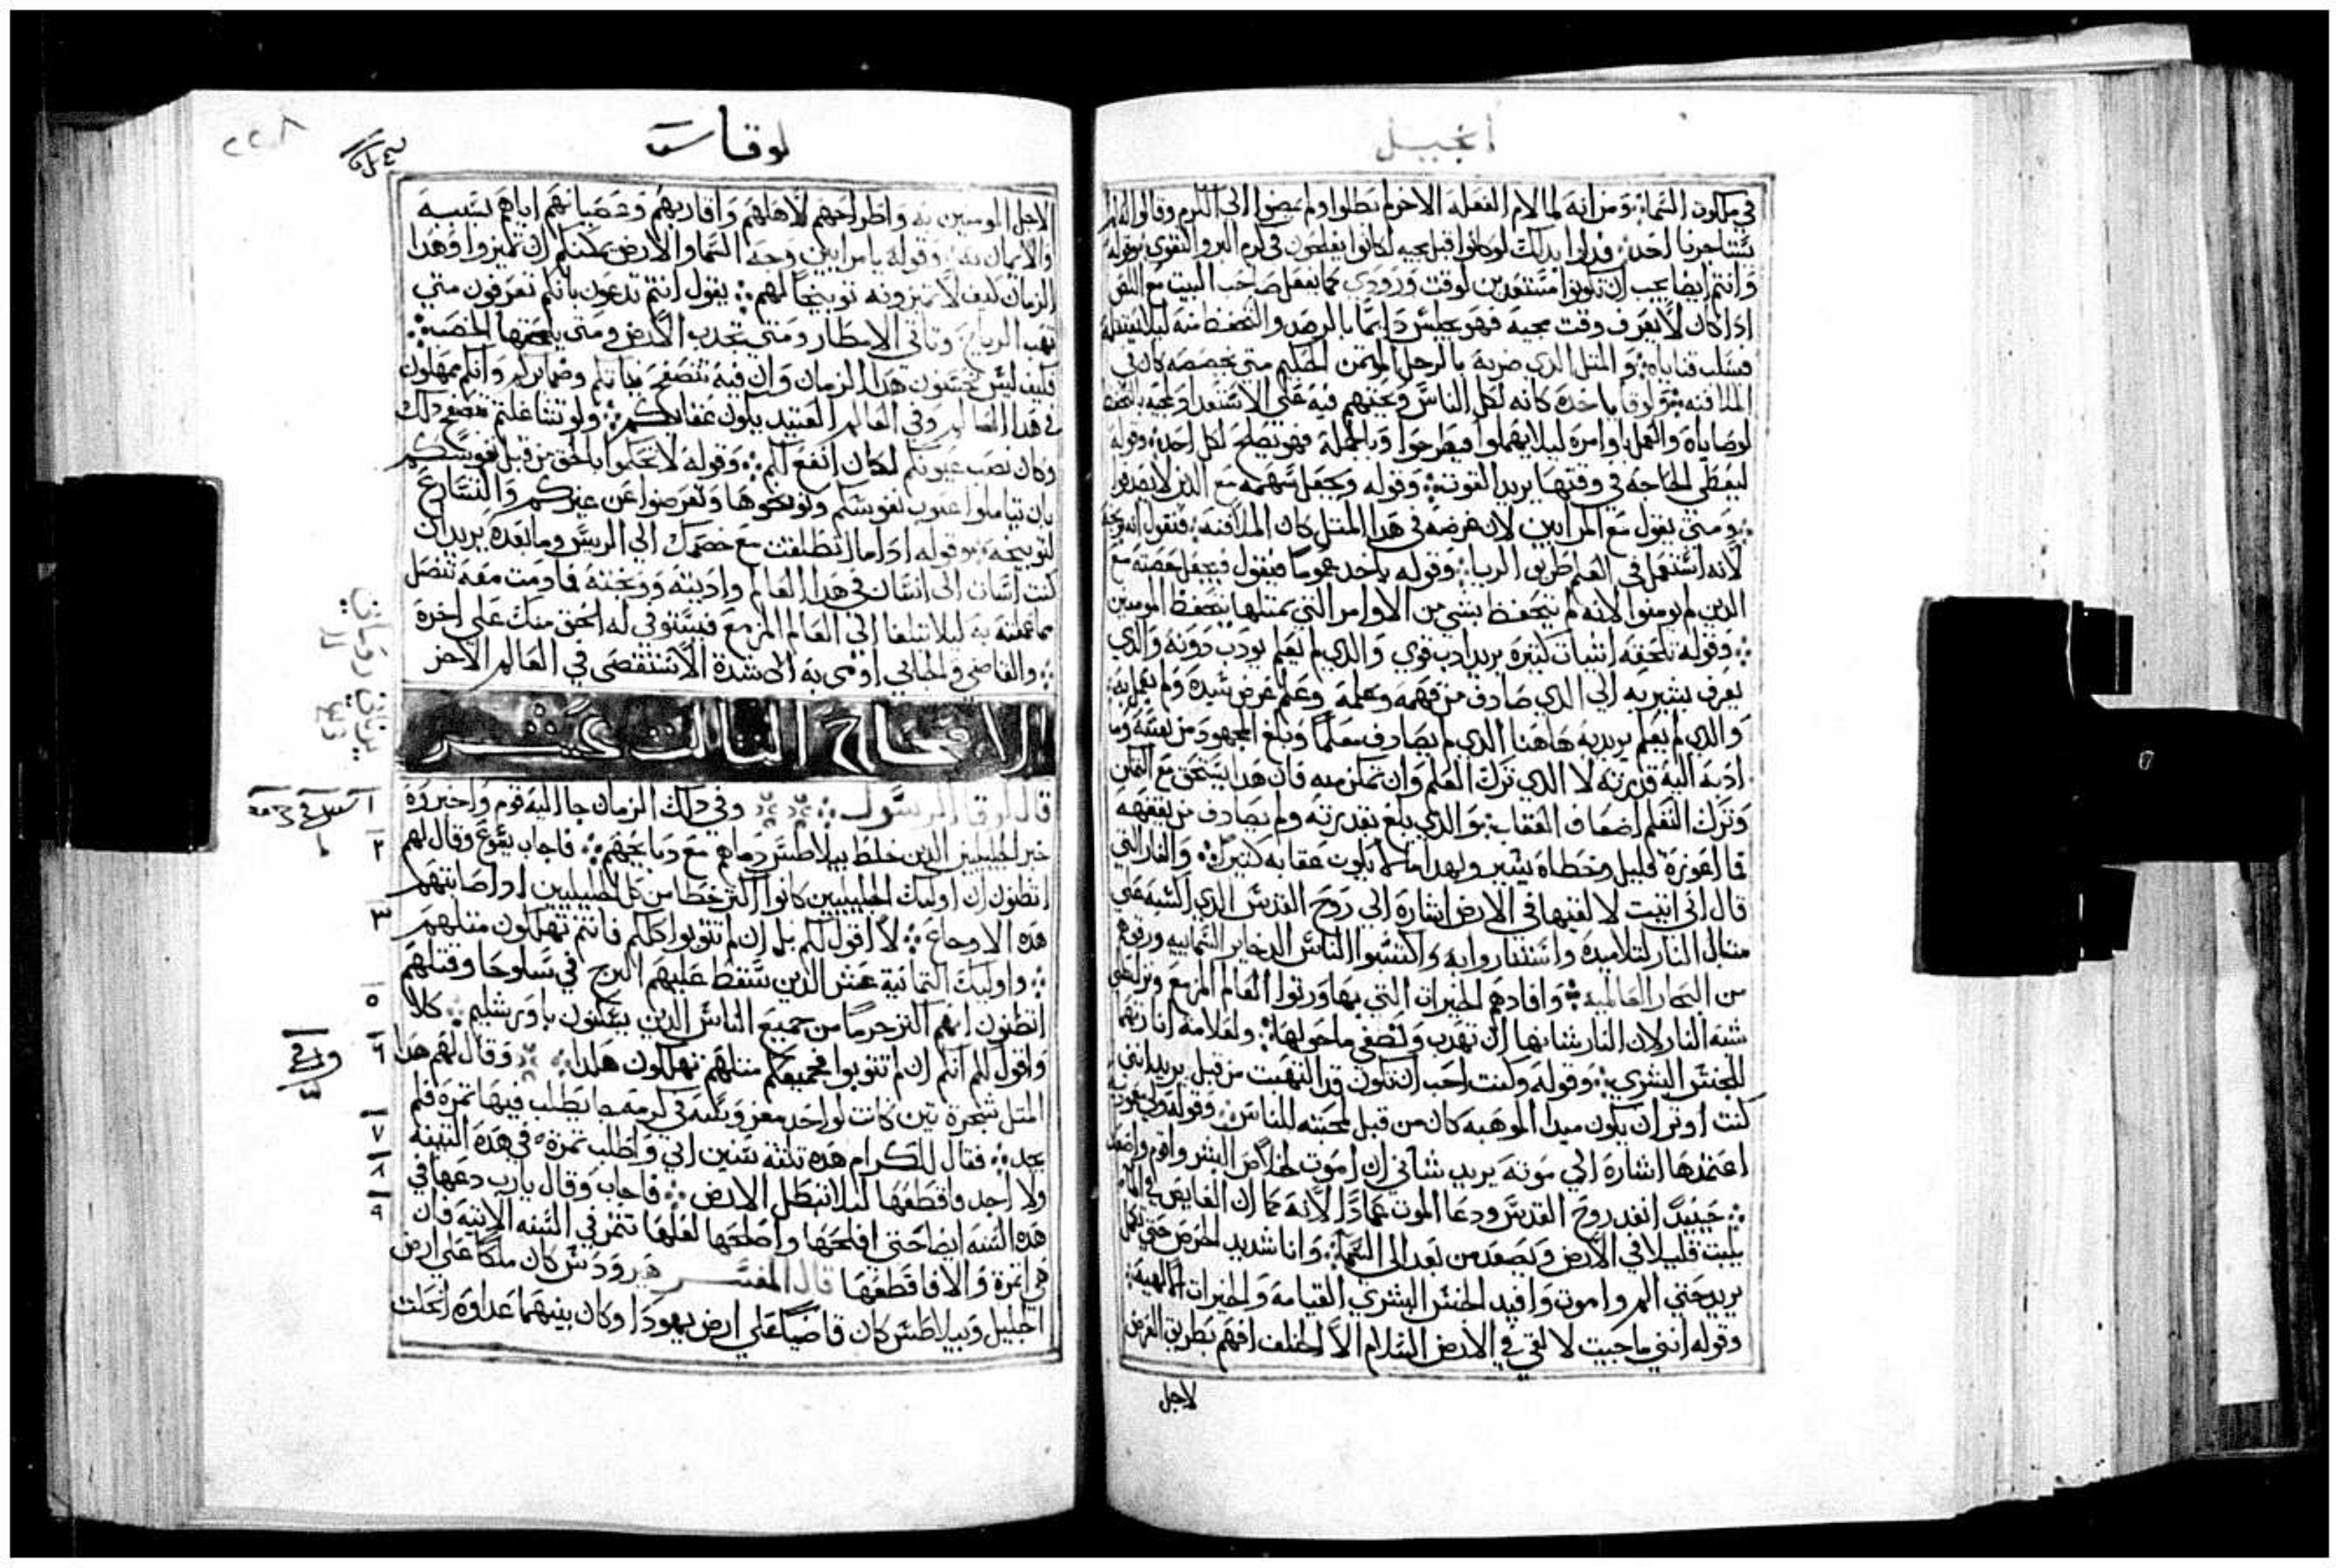 انجيل
في ملكوت السماء ومن انه لما لام الفعله الاخر لم تطلوا ولم يمضوا الي الكرم وقالوا انه لم
يستاجرنا احد فدلوا بدلك لو كانوا قبل مجيه لكانوا يفلحون في كرم البر والتقوي وقوله
وانتم ايضا يجب ان تكونوا مستعدين لوقت ورودي كما يفعل صاحب البيت مع اللص
ادا كان لا يعرف وقت مجيه فهو يجلس دايما بالرصد والتحفظ منه ليلا
فيسلب قناياه والمتل الدي ضربه بالرجل الموتمن الحكيم متي يخصصه كان في
الملافنه ولوقا ياخده كانه لكل الناس وبحتهم فيه علي الاستعداد
لوصاياه والعمل باوامره ليلا يهملوا فيطرحوا وبالجمله فهو يصلح لكل احد وقوله
ليعطي الحاجه في وقتها يريد القوت وقوله ويجعل سهمه مع الدين لا يصدقوا
ومتي يقول مع المرايين لان غرضه في هدا المتل كان الملافنه فنقول انه
لانه استعمل في العلم طريق الريا وقوله ياخد عموما فيقول فيجعل حصته مع
الدين لم يومنوا لانه لم يتحفظ بشي من الاوامر التي بمتلها يتحفظ المومنين
وقوله تلحقه اشيات كتيره يريد ادب قوي والدي لم يعلم يودب دونه والدي
يعرف يشير به الي الدي صادف من فهمه وعلمه وعلم غرض سيده ولم يعمل به
والدي لم يعلم يريد به هاهنا الدي لم يصادف معلما وبلغ المجهود من نفسه وما
ادته اليه قدرته لا الدي ترك العلم وان تمكن منه فان هدا يستحق مع التمكن
وترك التعلم اضعاف العقاب والدي بلغ بقدرته ولم يصادف من يفهمه
فما اعوزه قليل وخطاه يسير ولهدا ما لا يكون عقابه كتيرا والنار التي
قال اني اتيت لالقيها في الارض اشاره الي روح القدس الدي
متال النار لتلاميده واستناروا به واكتسبوا الناس الدخاير السماييه ورقوهم
من البحار العالميه وافادهم الخيرات التي بها ورتوا العالم المزمع
شبه النار لان النار شانها ان تهدب وتصفي ما حولها ولعلامه انارتهم
للجنس البشري وقوله وكنت احب ان تكون قد التهبت من قبل يريد انني
كنت اوتر ان يكون مبدا الموهبه كان من قبل لمحبته للناس وقوله ولي معموديه
اعتمدها اشاره الي موته يريد شاني ان اموت لخلاص البشر واقوم واصعد
حينيد انفد روح القدس ودعا الموت عمادا لانه كما ان الغايص في الما
يلبت قليلا في الارض ويصعد من بعد الي السما وانا شديد الحرص حتي تكمل
يريد حتي الم واموت وافيد الجنس البشري القيامه والخيرات الالهيه
وقوله انني ما جيت لالقي في الارض السلام الا الخلف افهم بطريق العرض
لاجل
لوقا
٢٢٨
لاجل المومنين به واطراحهم لاهلهم واقاربهم وعصيانهم اياهم بسببه
والايمان به وقوله يا مرايين وجه السما والارض يمكنكم ان تميزوا وهدا
الزمان كيف لا تميزونه توبيخا لهم يقول انتم تدعون بانكم تعرفون متي
تهب الرياح وتاتي الامطار ومتي تجدب الارض ومتي يلحقها الخصب
فكيف ليس تحسنون هدا الزمان وان فيه تتصفح نياتكم وضمايركم وانكم مهملون
في هدا العالم وفي العالم العتيد يكون عقابكم ولو تشاغلتم بتصفح دلك
وكان نصب عيونكم لكان انفع لكم وقوله لا تحكموا بالحق من قبل نفوسكم
بان تتاملوا عيوب نفوسكم وتوبخوها وتعرضوا عن غيركم والتسارع
لتوبيخه وقوله ادا ما انطلقت مع خصمك الي الريس وما بعده يريد ان
كنت اسات الي انسان في هدا العالم واديته ووبخته فما دمت معه تنصل
مما عملته به ليلا تبلغا الي العالم المزمع فيستوفي له الحق منك علي اخره
والقاضي والجابي اومي به الي شدة الاستقصي في العالم الاخر
الاصحاح التالت عشر
قال لوقا الرسول وفي دلك الزمان جا اليه قوم واخبروه
خبر الجليليين الدين خلط بيلاطس دماهم مع دبايحهم فاجاب يشوع وقال لهم
اتظنون ان اوليك الجليليين كانوا اكتر خطا من كل الجليليين اد اصابتهم
هده الاوجاع لا اقول لكم بل ان لم تتوبوا كلكم فانتم تهلكون متلهم
واوليك التمانية عشر الدين سقط عليهم البرج في سلوحا وقتلهم
اتظنون انهم اكتر جرما من جميع الناس الدين يسكنون باورشليم كلا
واقول لكم انكم ان لم تتوبوا فجميعكم متلهم تهلكون هكدا وقال لهم هدا
المتل شجرة تين كانت لواحد مغروسه في كرمه جا يطلب فيها تمرة فلم
يجد فقال للكرام هده تلته سنين اتي واطلب تمرة في هده التينه
ولا اجد فاقطعها ليلا تبطل الارض فاجاب وقال يارب دعها في
هده السنه ايضا حتي افلحها واصلحها لعلها تتمر في السنه الاتيه فان
هي اتمرة والا فاقطعها قال المفسر هيرودس كان ملكا علي ارض
الجليل وبيلاطس كان قاضيا علي ارض يهودا وكان بينهما عداوه انحلت
١
٢
٣
٥
٦
٧
٨
٩